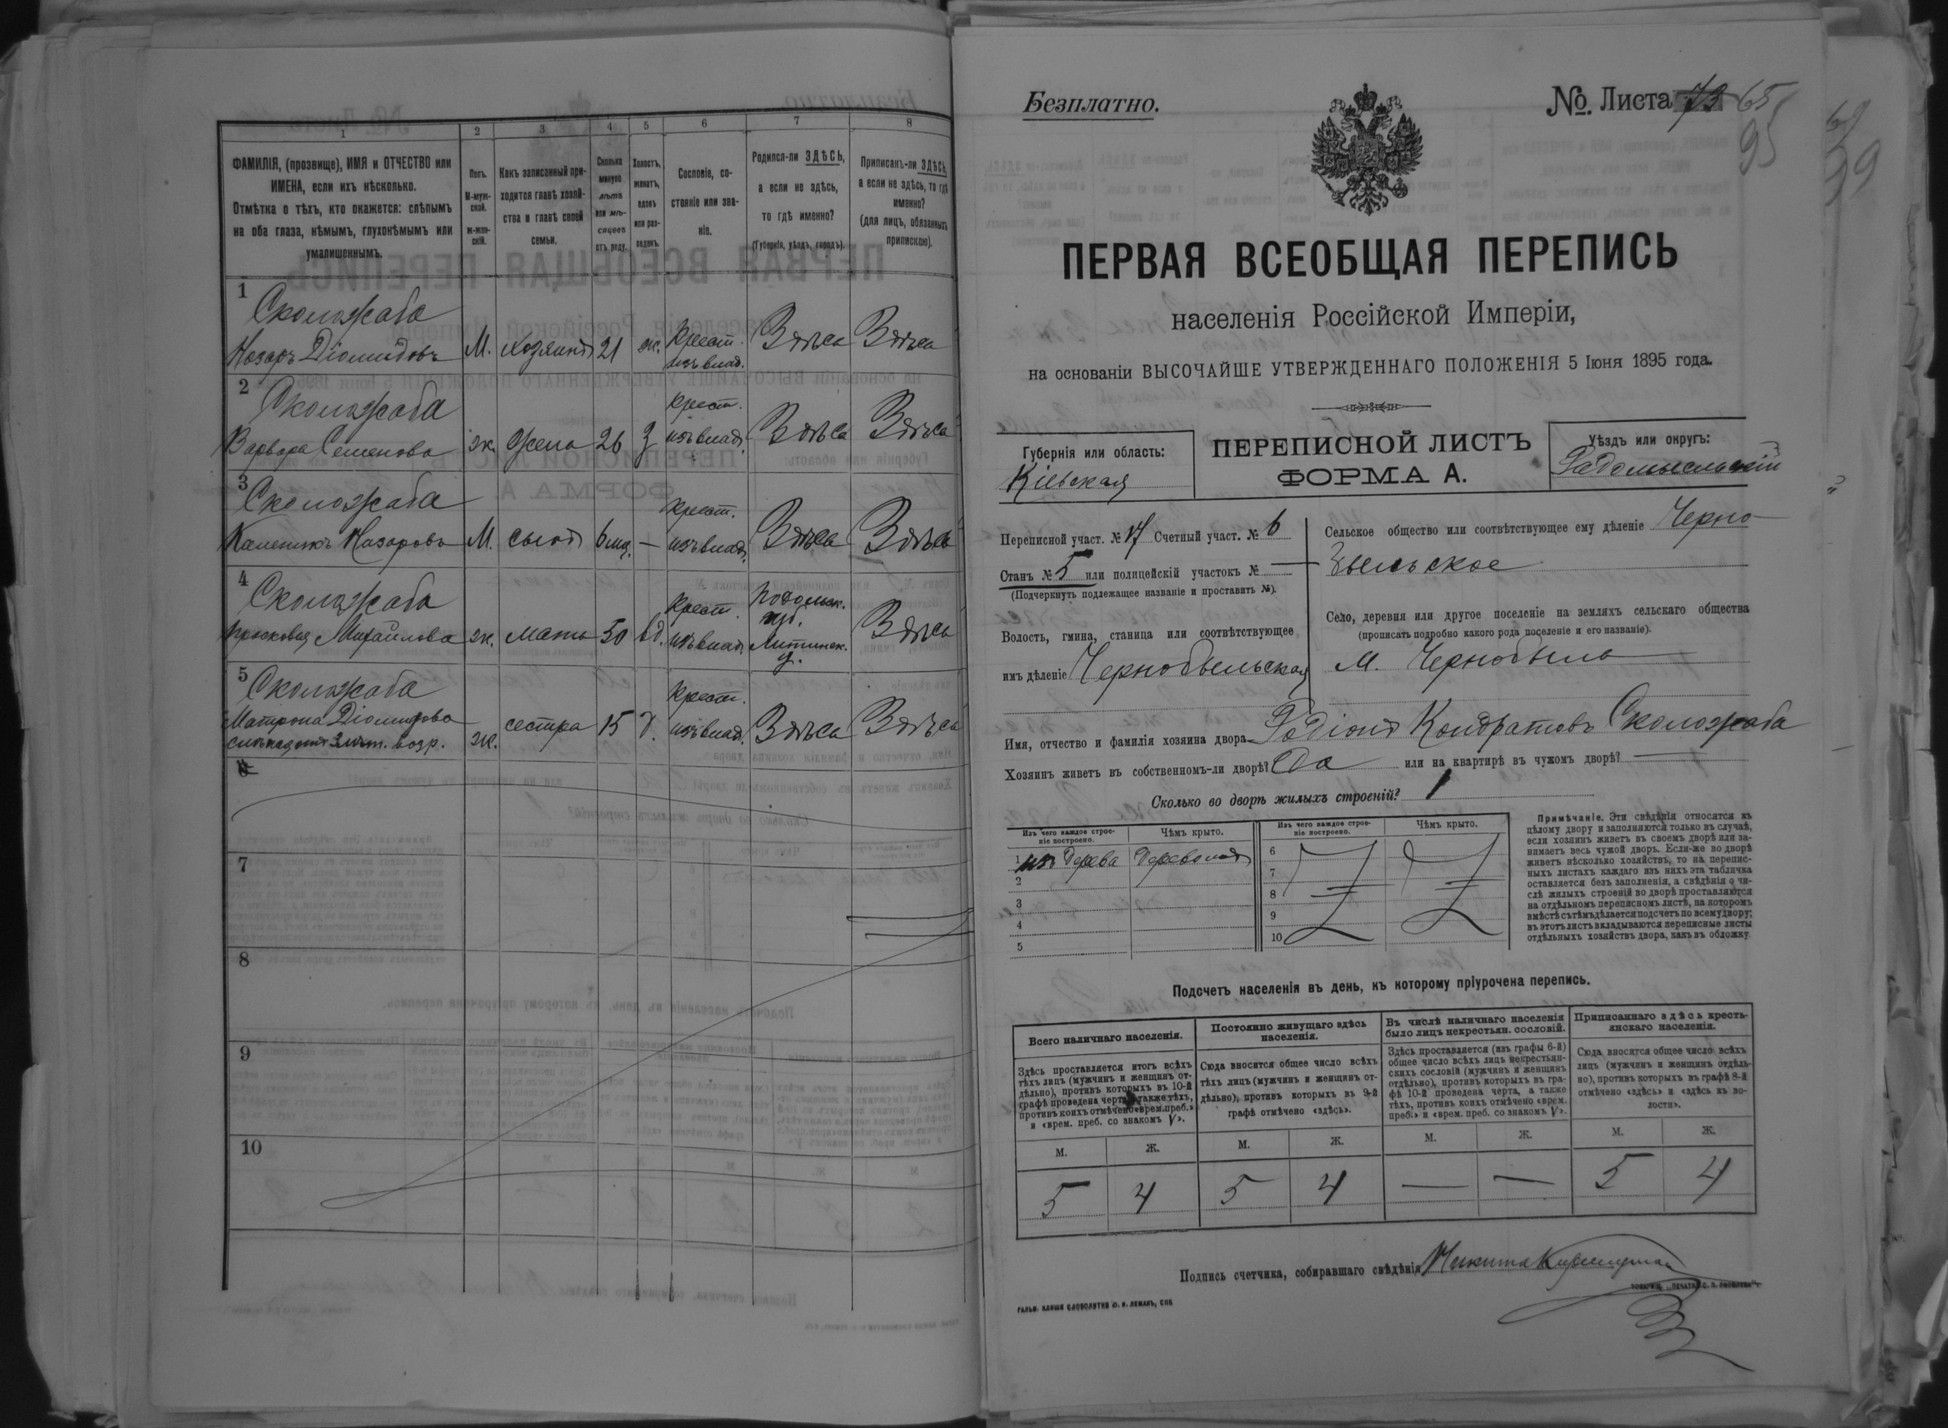 1
2
3
4
5
6
7
8
ФАМИЛІЯ, (прозвище), ИМЯ и ОТЧЕСТВО или
ИМЕНА, если ихъ нѣсколько.
Отмѣтка о тѣхъ, кто окажется: слѣпымъ
на оба глаза, нѣмымъ, глухонѣмымъ или
умалишеннымъ.
Полъ.
М-муж-
ской.
Ж-жен-
скій.
Какъ записанный при-
ходится главѣ хозяй-
ства и главѣ своей
семьи.
Сколько
минуло
лѣтъ
или мѣ-
сяцевъ
отъ роду.
Холостъ,
женатъ,
вдовъ
или раз-
веденъ.
Сословіе, со-
стояніе или зва-
ніе.
Родился-ли ЗДѢСЬ,
а если не здѣсь,
то гдѣ именно?
(Губернія, уѣздъ, городъ).
Приписанъ-ли ЗДѢСЬ,
а если не здѣсь, то гдѣ
именно?
(для лицъ, обязанныхъ
припискою).
1
Сколожаба
Назаръ Діомидовъ М. хозяинъ 21 ж. Крест. изъ влад. Здѣсь Здѣсь
2
Сколожаба
Варвара Семенова ж. жена 26 З крест. изъ влад. Здѣсь Здѣсь
3
Сколожаба
Каленикъ Назаровъ М. сынъ 6 мц. — крест. изъ влад. Здѣсь Здѣсь
4
Сколожаба
Михайлова ж. мать 50 вд. крест. изъ влад. Подольск. губ. Литинск. у. Здѣсь
5
Сколожаба
Матрона Діомидова
ж. сестра 15 д. крест. изъ влад. Здѣсь Здѣсь
6
7
8
9
10
Безплатно.
№ Листа 65
95
ПЕРВАЯ ВСЕОБЩАЯ ПЕРЕПИСЬ
населенія Россійской Имперіи,
на основаніи ВЫСОЧАЙШЕ УТВЕРЖДЕННАГО ПОЛОЖЕНІЯ 5 Іюня 1895 года.
Губернія или область:
Кіевская
ПЕРЕПИСНОЙ ЛИСТЪ
ФОРМА А.
Уѣздъ или округъ:
Радомысльскій
Переписной участ. № Счетный участ. № 6
Станъ № 5 или полицейскій участокъ № —
(Подчеркнуть подлежащее названіе и проставить №).
Волость, гмина, станица или соотвѣтствующее
имъ дѣленіе Чернобыльская
Сельское общество или соотвѣтствующее ему дѣленіе Черно-
быльское
Село, деревня или другое поселеніе на земляхъ сельскаго общества
(прописать подробно какого рода поселеніе и его названіе).
М. Чернобыль
Имя, отчество и фамилія хозяина двора Родіонъ Кондратовъ Сколожаба
Хозяинъ живетъ въ собственномъ-ли дворѣ? Да или на квартирѣ въ чужомъ дворѣ? —
Сколько во дворѣ жилыхъ строеній? 1
Изъ чего каждое строе-
ніе построено.
Чѣмъ крыто.
Изъ чего каждое строе-
ніе построено.
Чѣмъ крыто.
1 изъ дерева Деревомъ
2
3
4
5
6
7
8
9
10
Примѣчаніе. Эти свѣдѣнія относятся къ
цѣлому двору и заполняются только въ случаѣ,
если хозяинъ живетъ въ своемъ дворѣ или за-
нимаетъ весь чужой дворъ. Если-же во дворѣ
живетъ нѣсколько хозяйствъ, то на перепис-
ныхъ листахъ каждаго изъ нихъ эта табличка
оставляется безъ заполненія, а свѣдѣнія о чи-
слѣ жилыхъ строеній во дворѣ проставляются
на отдѣльномъ переписномъ листѣ, на которомъ
вмѣстѣ съ тѣмъ дѣлается подсчетъ по всему двору;
въ этотъ листъ вкладываются переписные листы
отдѣльныхъ хозяйствъ двора, какъ въ обложку.
Подсчетъ населенія въ день, къ которому пріурочена перепись.
Всего наличнаго населенія.
Здѣсь проставляется итогъ всѣхъ
тѣхъ лицъ (мужчинъ и женщинъ от-
дѣльно), противъ которыхъ въ 10-й
графѣ проведена черта, а также тѣхъ,
противъ коихъ отмѣчено «врем. преб.»
и «врем. преб. со знакомъ V».
Постоянно живущаго здѣсь
населенія.
Сюда вносится общее число всѣхъ
тѣхъ лицъ (мужчинъ и женщинъ от-
дѣльно), противъ которыхъ въ 9-й
графѣ отмѣчено «здѣсь».
Въ числѣ наличнаго населенія
было лицъ некрестьян. сословій.
Здѣсь проставляется (изъ графы 6-й)
общее число всѣхъ лицъ некрестьян-
скихъ сословій (мужчинъ и женщинъ
отдѣльно), противъ которыхъ въ гра-
фѣ 10-й проведена черта, а также
тѣхъ, противъ коихъ отмѣчено «врем.
преб.» и «врем. преб. со знакомъ V».
Приписаннаго здѣсь кресть-
янскаго населенія.
Сюда вносится общее число всѣхъ
лицъ (мужчинъ и женщинъ отдѣль-
но), противъ которыхъ въ графѣ 8-й
отмѣчено «здѣсь» и «здѣсь къ во-
лости».
М. Ж. М. Ж. М. Ж. М. Ж.
5 4 5 4 — — 5 4
Подпись счетчика, собиравшаго свѣдѣнія Никита